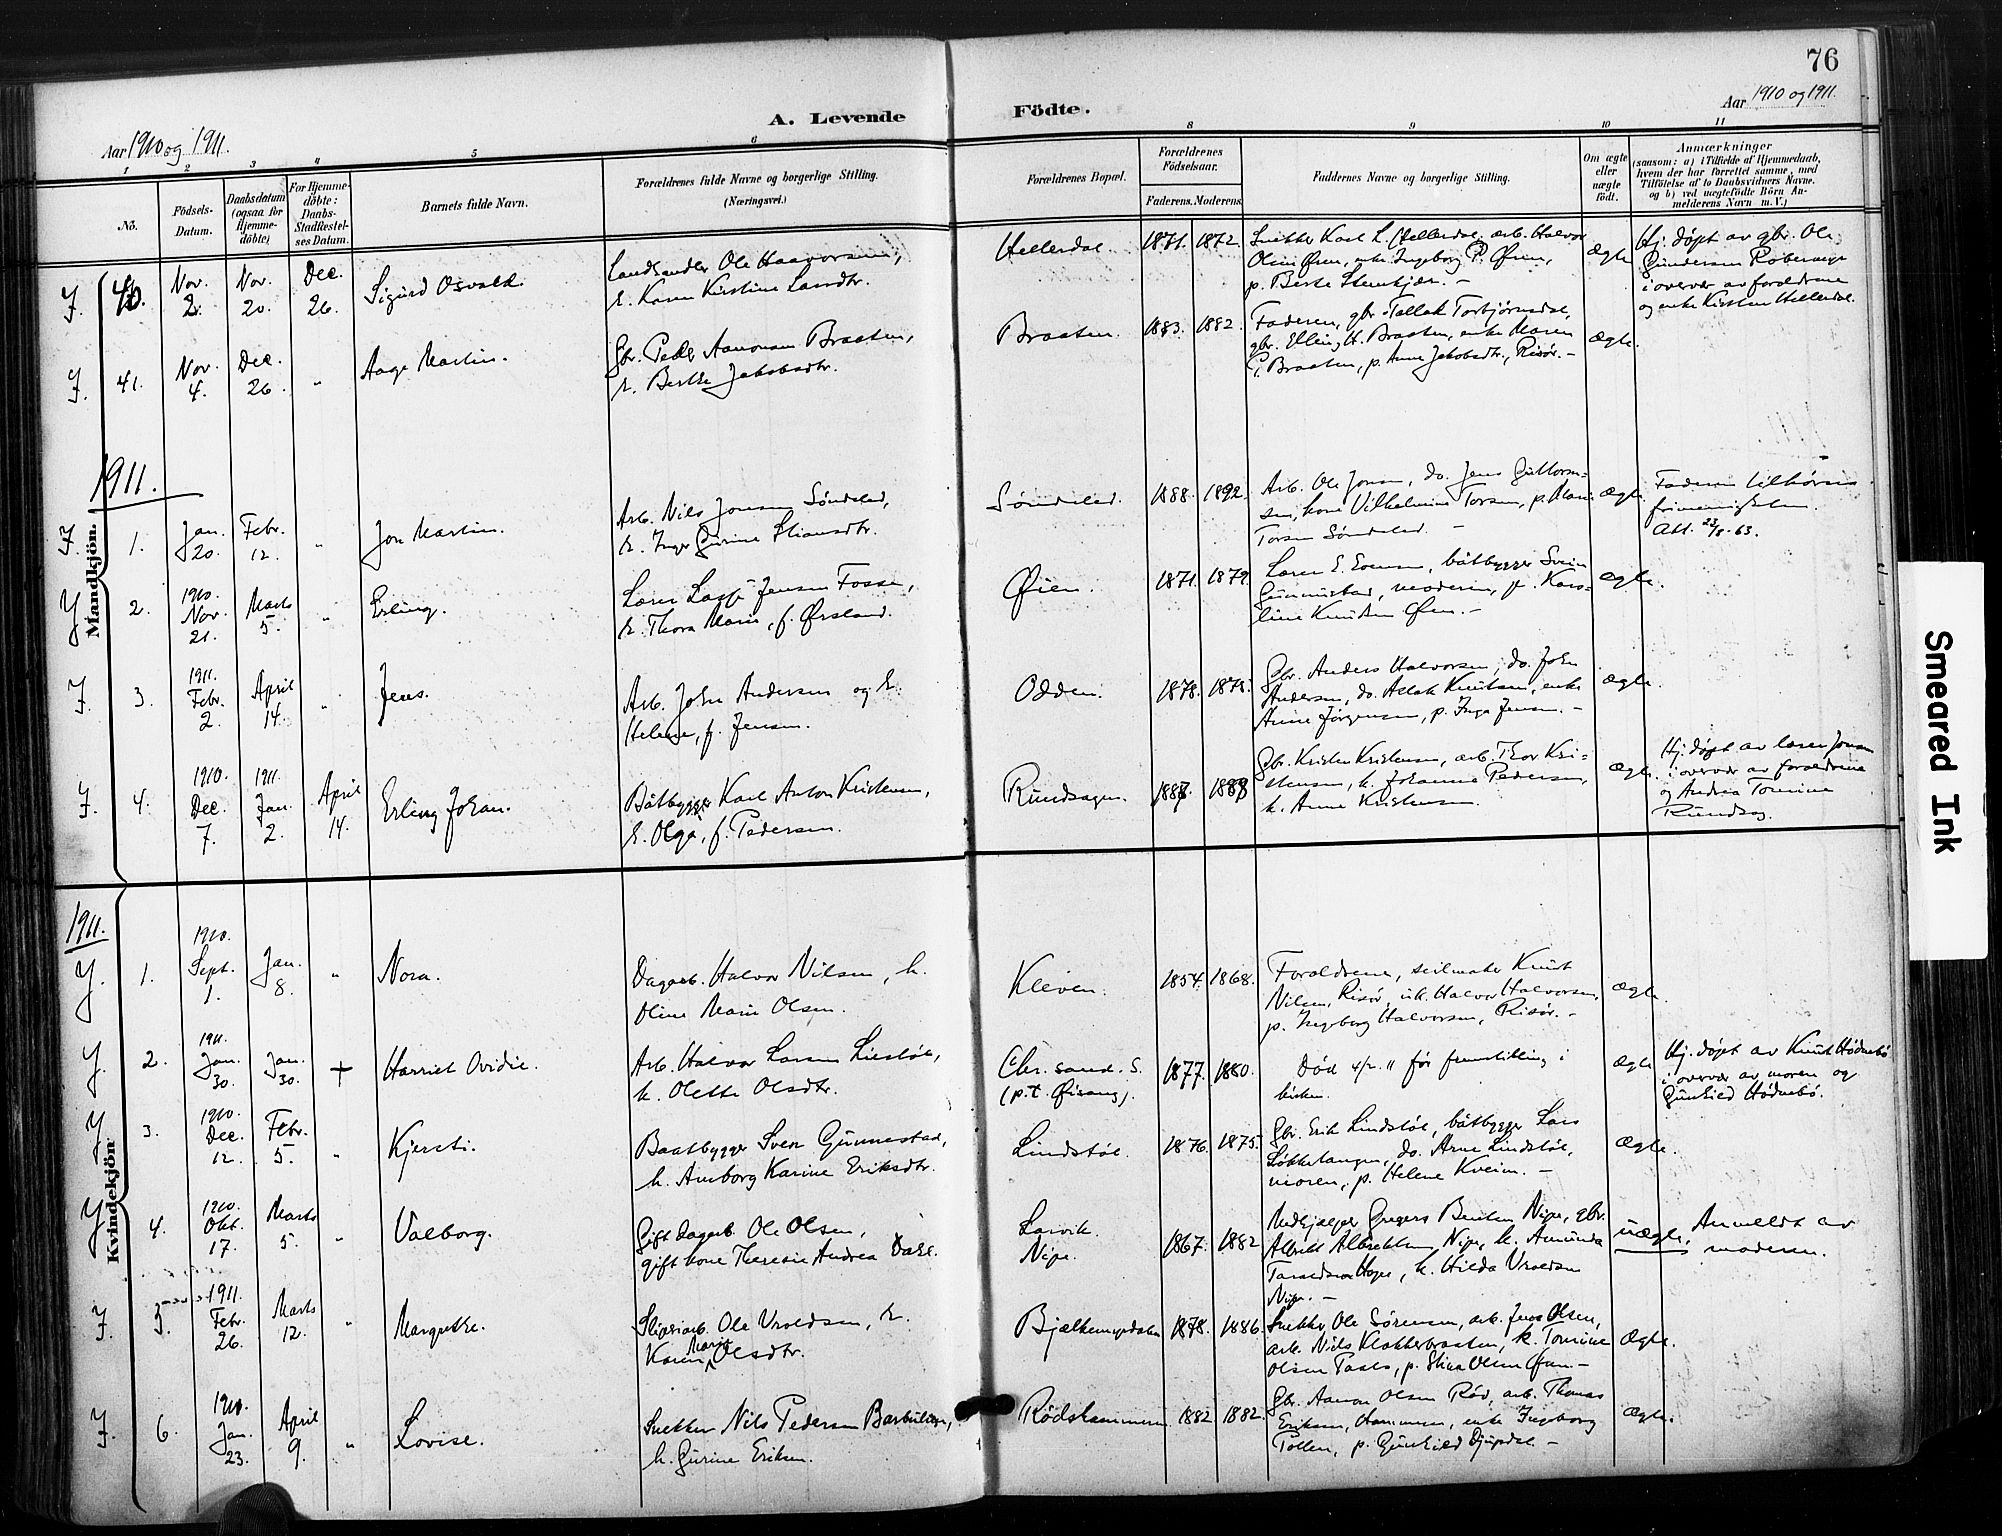 76
Aar 1910 og 1911.
A. Levende Födte.
Aar 1910 og 1911.
1 2 3 4 5 6 8 9 10 11
No.
Födsels-
Datum.
Daabsdatum
(ogsaa for
Hjemme-
döbte)
For Hjemme-
döbte:
Daabs-
Stadfestel-
ses Datum.
Barnets fulde Navn.
Forældrenes fulde Navne og borgerlige Stilling.
(Næringsvei.)
Forældrenes Bopæl.
Forældrenes
Födselsaar.
Faderens. Moderens.
Faddernes Navne og borgerlige Stilling.
Om ægte
eller
uægte
födt.
Anmærkninger
(saasom: a) i Tilfælde af Hjemmedaab,
hvem der har forrettet samme, med
Tilföielse af to Daabsvidners Navne.
og b) ved uægtefödte Börn An-
melderens Navn m. V.)
40. Nov. 2. Nov. 20. Dec. 26. Sigurd Osvald.
Landhandler Ole Haavorsen,
h. Karen Kirstine Larsdtr.
Hellerdal. 1871. 1872.
Snekker Karl L. Hellerdal, arb. Halvor
Olsen Øien, enke Ingeborg P. Øien,
p. Berte Stenkjær. –
ægte.
Hj. døpt av gbr. Ole
Gundersen
i overvær av forældrene
og enke Kirsten Hellerdal.
41. Nov. 4. Dec. 26. " Aage Martin.
Gbr. Peder Aamonsen Braaten,
h. Berthe Jakobsdtr.
Braaten. 1883. 1882.
Faderen, gbr. Tallak Torbjørnsdal,
gbr. Elling H. Braaten, enke Maren
P. Braaten, p. Anne Jakobsdtr., Risør. –
ægte.
1911.
Mandkjön.
1. Jan. 20. Febr. 12. " Jon Martin.
Arb. Nils Jonsen Søndeled,
h. Inger Gurine Stiansdtr.
Søndeled. 1888. 1892.
Arb. Ole Jonsen, do. Jens Guttorm-
sen, kone Vilhelmine Torsen, p. Mari
Torsen Søndeled. –
ægte.
Faderen tilhører
frimenigheten.
Att. 23/8-63.
2. 1910. Nov. 21. Marts 5. " Erling.
Lærer Lasse Jensen Fosse,
h. Thora Marie, f. Ørsland.
Øien. 1871. 1879.
Lærer E. Evensen, båtbygger Svein
Gunnestad, moderen, p. Karo-
line Knutsen Øien. –
ægte.
3. 1911. Febr. 2. April 14. " Jens.
Arb. John Andersen og h.
Helene, f. Jensen.
Odden. 1878. 1878.
Gbr. Anders Halvorsen, do. John
Andersen, do. Aslak Knutsen, enke
Anne Jørgensen, p. Inga Jensen. –
ægte.
4. 1910. Dec. 7. 1911. Jan. 2. April 14. Erling Johan.
Båtbygger Karl Anton Kristensen,
h. Olga, f. Pedersen.
Rundsagen. 1887. 1889
Gbr. Kristen Kristensen, arb. Thor Kri-
stensen, k. Johanne Pedersen,
k. Anne Kristensen.
ægte.
Hj. døpt av lærer Jonsen
i overvær av forældrene
og Andrea Tomine
Rundsag.
1911.
Kvindekjön
1. 1910. Sept. 1. Jan. 8. " Nora.
Dagarb. Halvor Nilsen, h.
Oline Marie Olsen.
Kleven. 1854. 1868.
Forældrene, seilmaker Knut
Nilsen, Risør, u.k. Halvor Halvorsen,
p. Ingeborg Halvorsen, Risør. –
ægte.
2. 1911. Jan. 30. Jan. 30. + Harriet Ovidie.
Arb. Halvor Larsen Liestøl,
h. Olette Olsdtr.
Chr.sand. S.
(p.t. Øisang). 1877. 1880.
Død 4/2 11 før fremstilling i
kirken.
ægte.
Hj. døpt av Knut Hødnebø
i overvær av moren og
Gunhild Hødnebø.
3. 1910. Dec. 12. Febr. 5. " Kjersti.
Baatbygger Sven Gunnestad,
h. Anborg Karine Eriksdtr.
Lindstøl. 1876. 1875.
Gbr. Erik Lindstøl, båtbygger Lars
Løkketangen, do. Arne Lindstøl,
moren, p. Helene Kveim. –
ægte.
4. 1910. Okt. 17. Marts 5. " Valborg.
Gift Dagarb. Ole Olsen,
gift kone Therese Andrea Dahl.
Larvik.
Nipe. 1867. 1882
Medhjælper Gregers Bentsen Nipe, gbr.
Albrikt Albriktsen Nipe, k. Amunda
Taraldsen Hope, k. Hilda Vroldsen
Nipe. –
uægte.
Anmeldt av
moderen.
5. 1911. Febr. 26. Marts 12. " Margrethe.
Sliperiarb. Ole Vroldsen, h.
Karen Marie Olsdtr.
Bjælkemyrdalen 1878. 1886.
Snekker Ole Sörensen, arb. Jens Olsen,
arb. Nils Klokkerbraaten, k. Tomine
Olsen, p. Stina Olsen Øien. –
ægte.
6. 1910. Jan. 23. April 9. " Lovise.
Snekker Nils Pedersen Barbulien,
h. Gurine Eriksen.
Rødskammeren 1882 1882.
Gbr. Aanon Olsen Röd, arb. Thomas
Eriksen, Hammeren, enke Ingeborg
Tollen, p. Gunhild Djupdal. –
ægte.
Smeared Ink